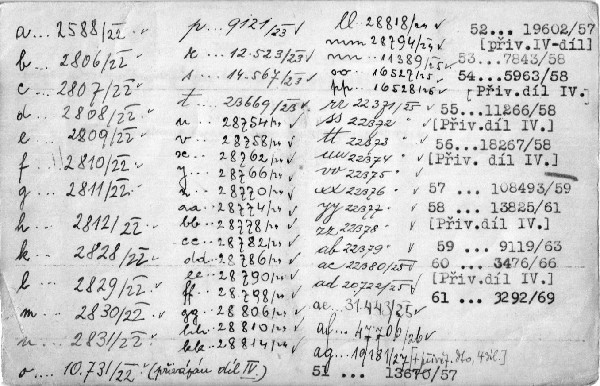 a... 2588/22
b... 2806/22
c... 2807/22
d... 2808/22
e... 2809/22
f... 2810/22
g... 2811/22
h... 2812/22
k... 2828/22
l... 2829/22
m... 2830/22
n... 2831/22
o... 10.731/22 (přivázán díl IV.)
p... 9121/23
r... 12.523/23
s... 14.567/23
t... 23669/23
u... 28754/24
v... 28758/24
x... 28762/24
y... 28766/24
z... 28770/24
aa... 28774/24
bb... 28778/24
cc... 28782/24
dd... 28786/24
ee... 28790/24
ff... 28798/24
gg... 28806/24
hh... 28810/24
kk... 28814/24
ll... 28818/24
mm 28794/24
nn... 11389/25
oo... 16527/25
pp.. 16528/25
rr 22371/25
ss 22372 "
tt 22373 "
uu 22374 "
vv 22375 "
xx 22376 "
yy 22377 "
zz 22378 "
ab 22379 "
ac 22380/25
ad 20722/25
ae... 31.443/25
af... 47706/26
ag... 19181/27
51 ... 13670/57
52... 19602/57
[přiv.IV-díl]
53...7843/58
54...5963/58
[Přiv.díl IV.]
55...11266/58
[Přiv.díl IV.]
56...18267/58
[Přiv.díl IV.]
57 ... 108493/59
58 ... 13825/61
[Přiv.díl IV.]
59 ... 9119/63
60 ... 3476/66
[Přiv.díl IV.]
61 ... 3292/69